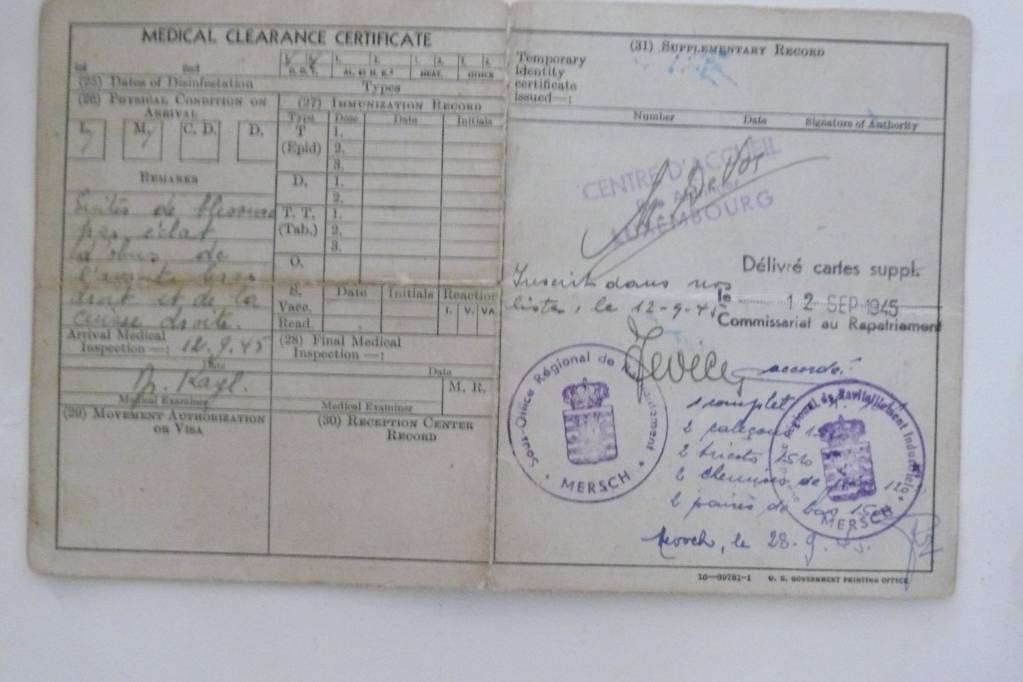 MEDICAL CLEARANCE CERTIFICATE
1. 2. 1. 2. 1. 2.
1st 2nd D. D. T. AL. 63 M. R.² HEAT. OTHER
(25) Dates of Disinfestation Types
(26) PHYSICAL CONDITION ON ARRIVAL
I. M. C. D. D.
REMARKS
Suites de blessure
par éclat
d'obus de
l'avant-bras
droit et de la
cuisse droite.
Arrival Medical
Inspection —: 12.9.45
Date
Dr. Kayl.
Medical Examiner
(27) IMMUNIZATION RECORD
Type Dose Date Initials
T 1.
(Epid) 2.
3.
D. 1.
2.
T. T. 1.
(Tab.) 2.
3.
O.
S. Date Initials Reaction
Vacc. I. V. VA.
Read.
(28) Final Medical
Inspection —:
Date
M. R.
Medical Examiner
(29) MOVEMENT AUTHORIZATION
OR VISA
(30) RECEPTION CENTER
RECORD
(31) SUPPLEMENTARY RECORD
Temporary
identity
certificate
issued—:
Number Date Signature of Authority
CENTRE D'ACCUEIL
LUXEMBOURG
Délivré cartes suppl.
le 12 SEP 1945
Commissariat au Rapatriement
Inscrit dans nos
listes, le 12-9-45
Sous-Office Régional de Ravitaillement
MERSCH
accordé:
1 complet
2 caleçons
2 tricots
2 chemises de
2 paires de bas
Régional de Ravitaillement Industriel
MERSCH
Mersch, le 28.9.45.
16—39781-1 U. S. GOVERNMENT PRINTING OFFICE